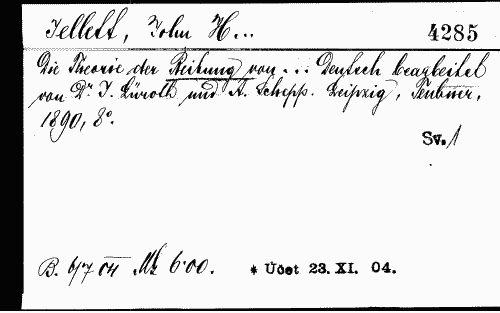 Jellett, John H... 4285
Die Theorie der Reibung von ... Deutsch bearbeitet
von Dr. J. Lüroth und A. Schepp. Leipzig, Teubner,
1890, 8°.
Sv. 1
B. 6/7 04 Mk 6·00. * Účet 23. XI. 04.